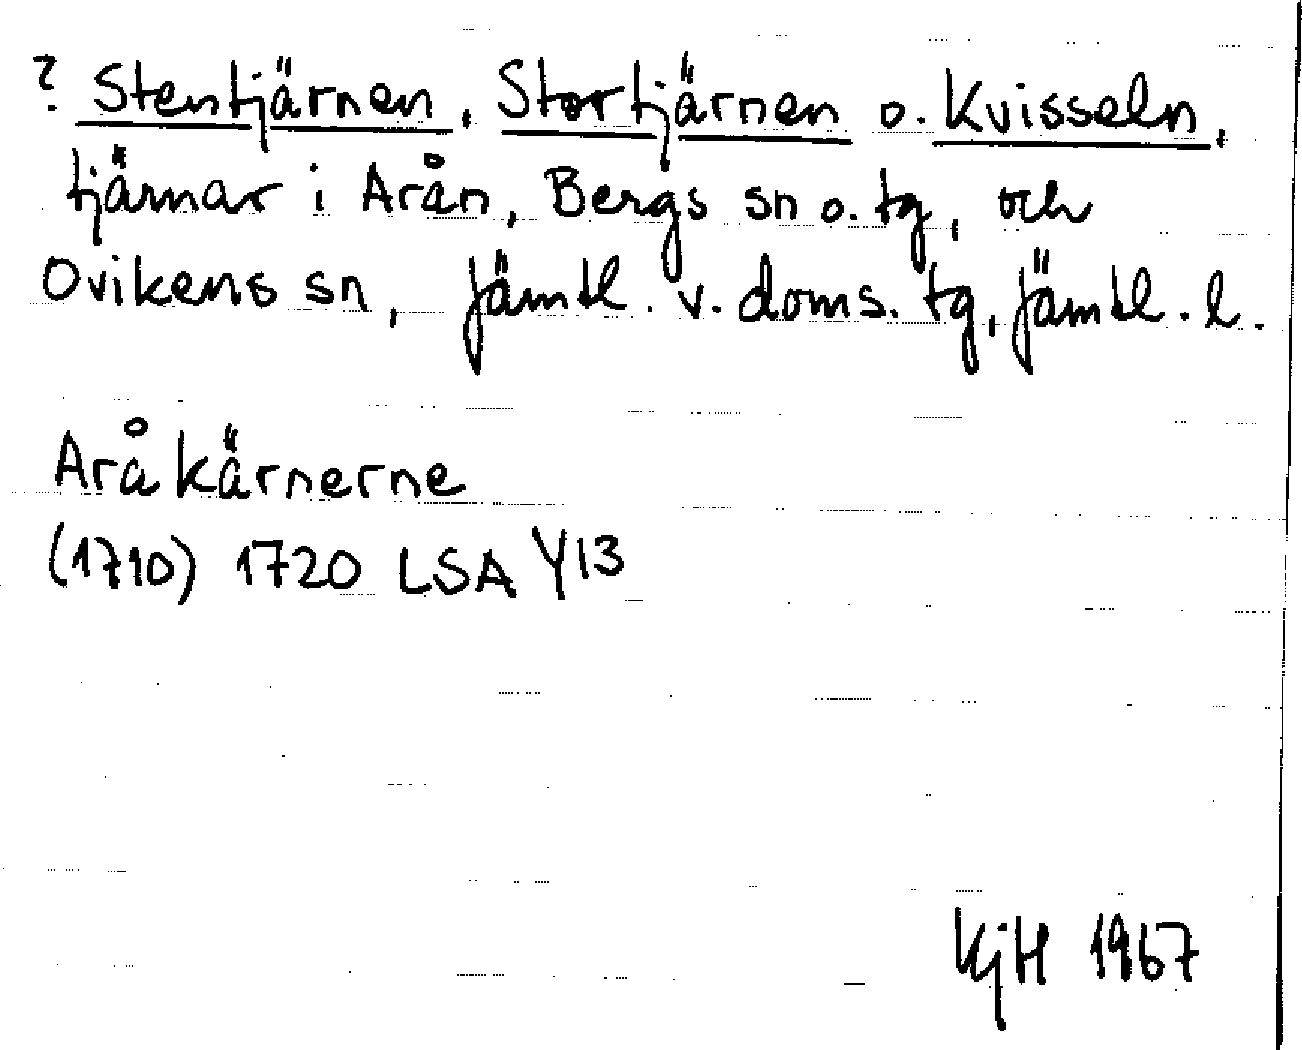 ? Stentjärnen, Stortjärnen o. Kvisseln,
tjärnar i Arån, Bergs sn o. tg, och
Ovikens sn, Jämtl. v. doms. tg, Jämtl. l.
Aråkärnerne
(1710) 1720 LSA Y13
KjH 1967